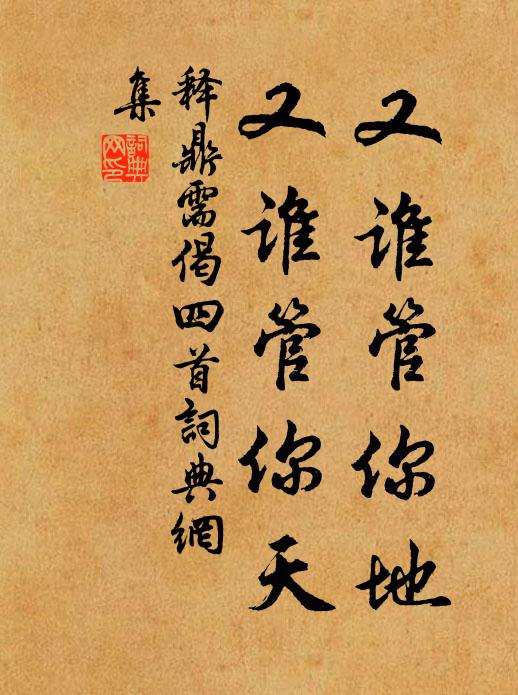 又谁管你地
又谁管你天
释鼎需偈四首詞典網
集
詞典網印